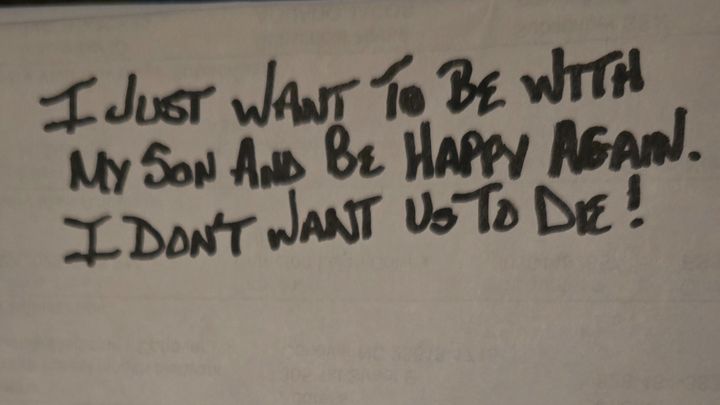 I JUST WANT TO BE WITH
MY SON AND BE HAPPY AGAIN.
I DON'T WANT US TO DIE!